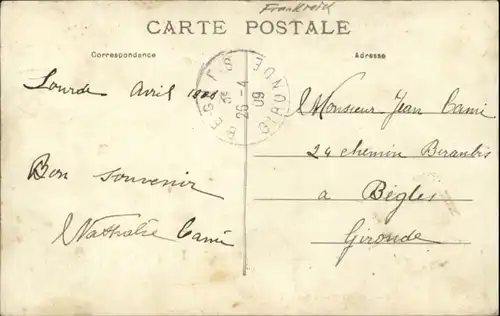 Frankreich
CARTE POSTALE
Correspondance
Adresse
BEGLES GIRONDE
26 -4
09
Lourde Avril
Bon souvenir
Nathalie Cami
Monsieur Jean Cami
24 chemin
a Bègles
Gironde